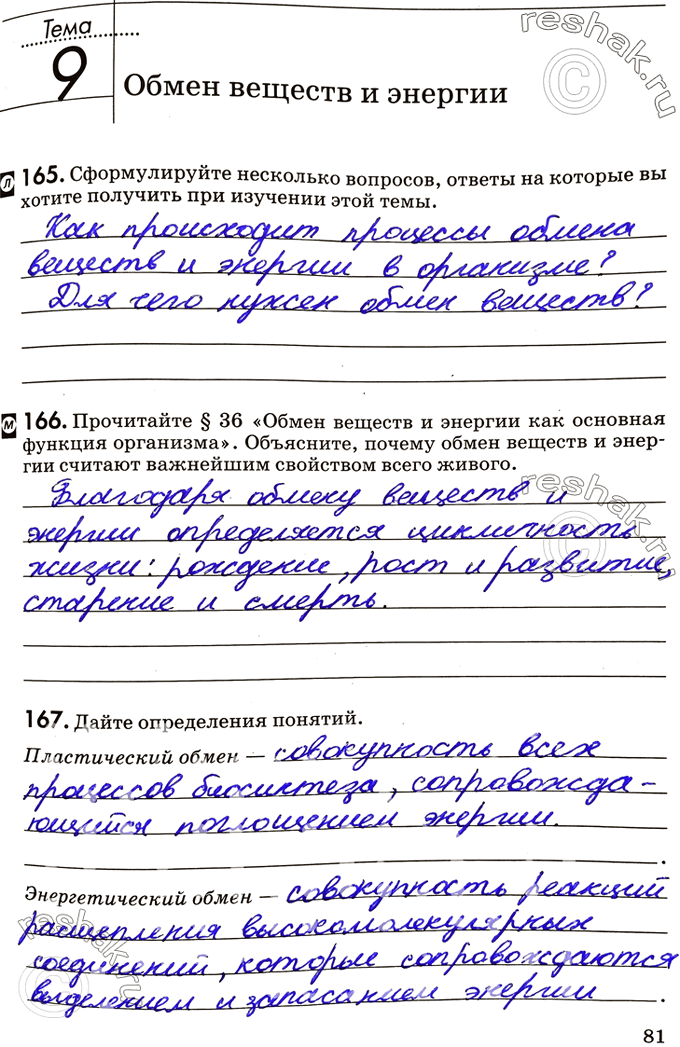 Тема
9
Обмен веществ и энергии
reshak.ru
©
Л 165. Сформулируйте несколько вопросов, ответы на которые вы
хотите получить при изучении этой темы.
Как происходит процессы обмена
веществ и энергии в организме?
Для чего нужен обмен веществ?
М 166. Прочитайте § 36 «Обмен веществ и энергии как основная
функция организма». Объясните, почему обмен веществ и энер-
гии считают важнейшим свойством всего живого.
Благодаря обмену веществ и
энергии определяется цикличность
жизни: рождение, рост и развитие,
старение и смерть.
reshak.ru
©
167. Дайте определения понятий.
Пластический обмен — совокупность всех
процессов биосинтеза, сопровожда-
ющийся поглощением энергии.
Энергетический обмен — совокупность реакций
расщепления высокомолекулярных
соединений, которые сопровождаются
выделением и запасанием энергии.
reshak.ru
©
81